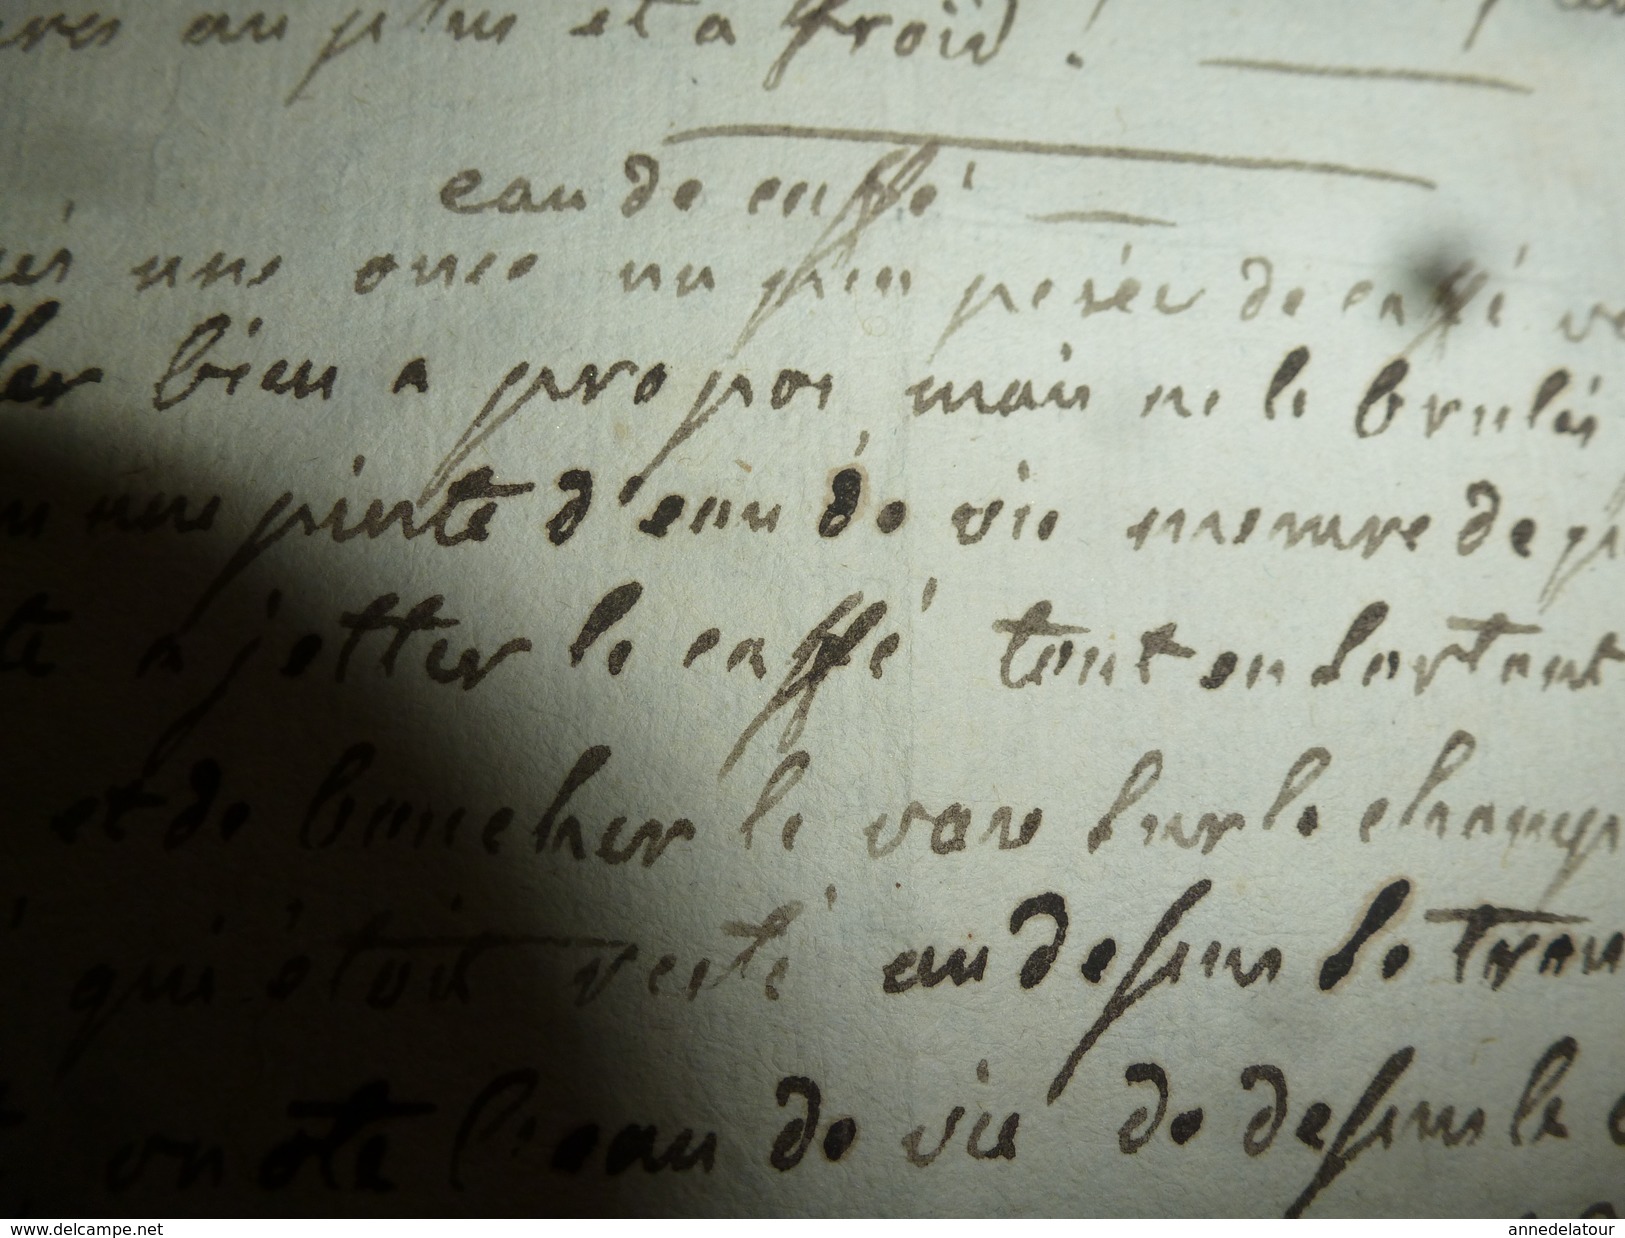 au plus et a froid !
eau de caffé
une once un peu pesée de caffé
bien a propos, mais ne le brulés
une pinte d'eau de vie mesure de p
a jetter le caffé tout en sortant
et de boucher le vase sur le champ
qui étoit resté au dessus se trou
on ôte l'eau de vie de dessus le
www.delcampe.net
annedelatour